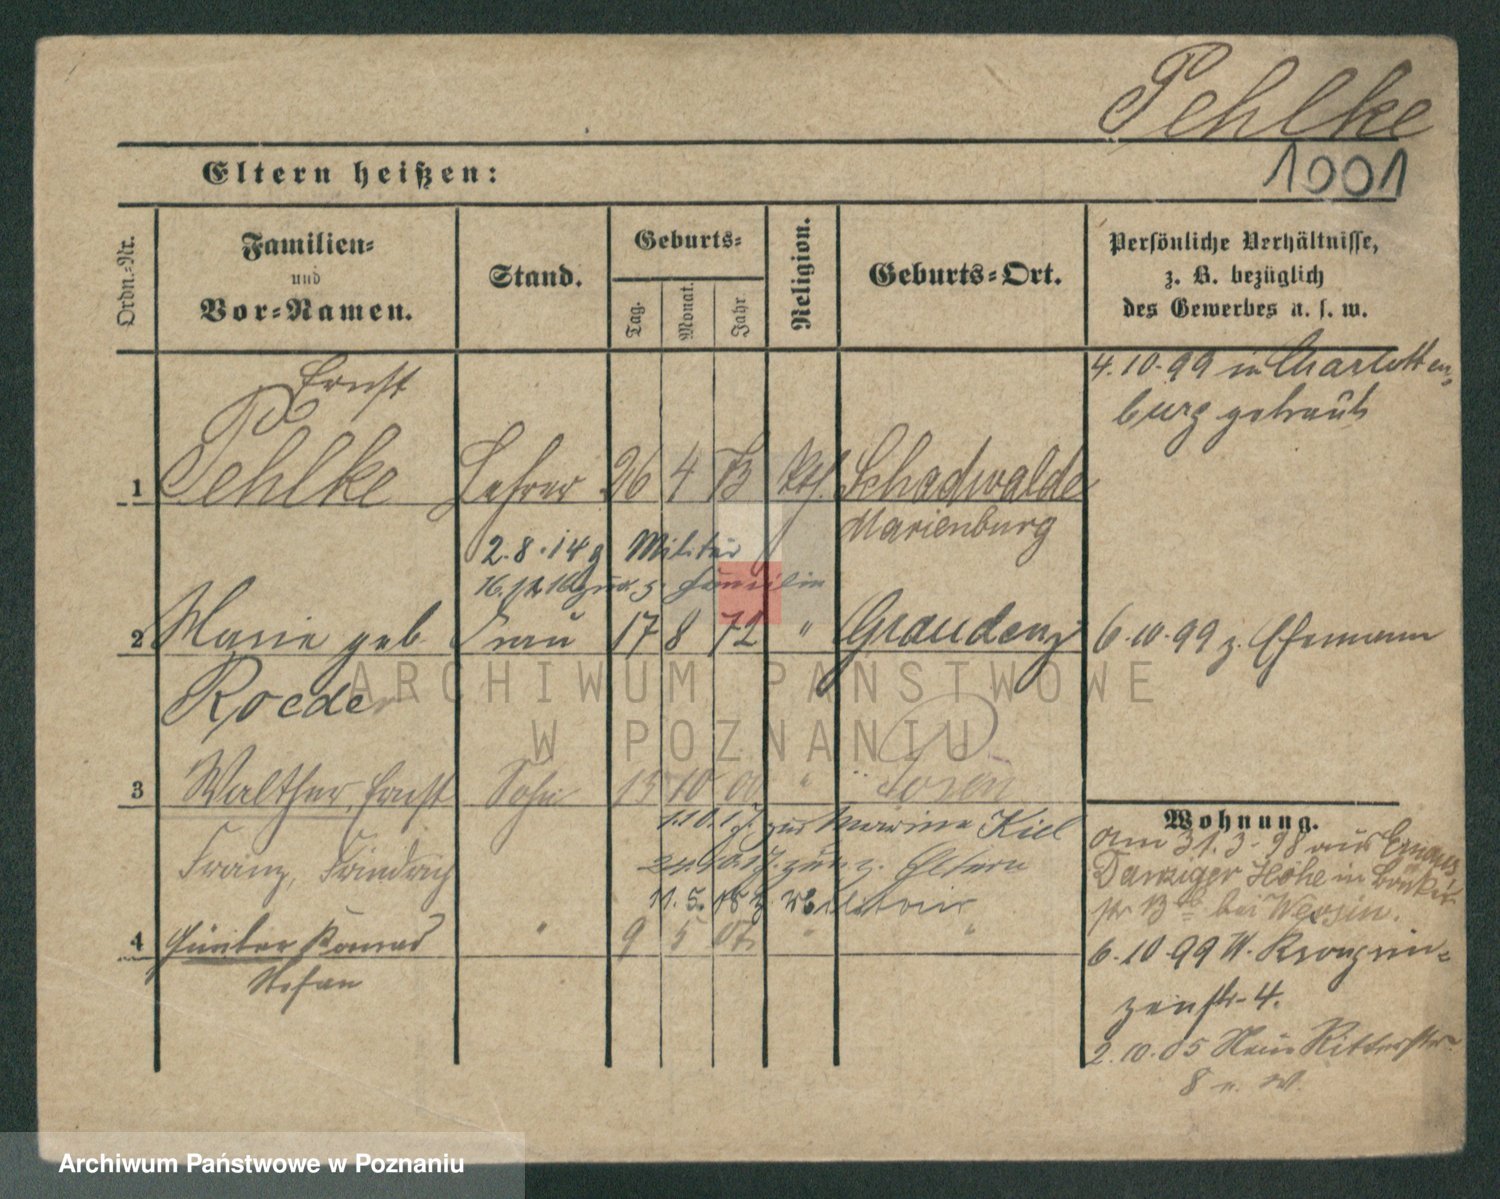 Pehlke
1001
Eltern heißen:
Ordn.-Nr.
Familien-
und
Vor-Namen.
Stand.
Geburts-
Tag.
Monat.
Jahr
Religion.
Geburts-Ort.
Persönliche Verhältnisse,
z. B. bezüglich
des Gewerbes u. s. w.
Ernst
1 Pehlke Lehrer 26 4 73 kth. Schadwalde
Marienburg
4.10.99 in Charlotten-
burg getraut
2.8.14 z Militär
z. Familie
2 Marie geb. Frau 17 8 72 " Graudenz 6.10.99 z. Ehemann
Roeder
3 Walther, Ernst Sohn 15 10 00 " Posen
Franz, Friedrich
1.10.17 zur Marine Kiel
zur. z. Eltern
11.5.18 z Militair
4 Günter Konrad " 9 5 07 " "
Stefan
Wohnung.
am 31.3.98 aus
Danziger Höhe in
str 13 bei
6.10.99 W. Kronprin-
zenstr. 4.
2.10.05 Neue Ritterstr.
8 n. W.
ARCHIWUM PAŃSTWOWE
W POZNANIU
Archiwum Państwowe w Poznaniu